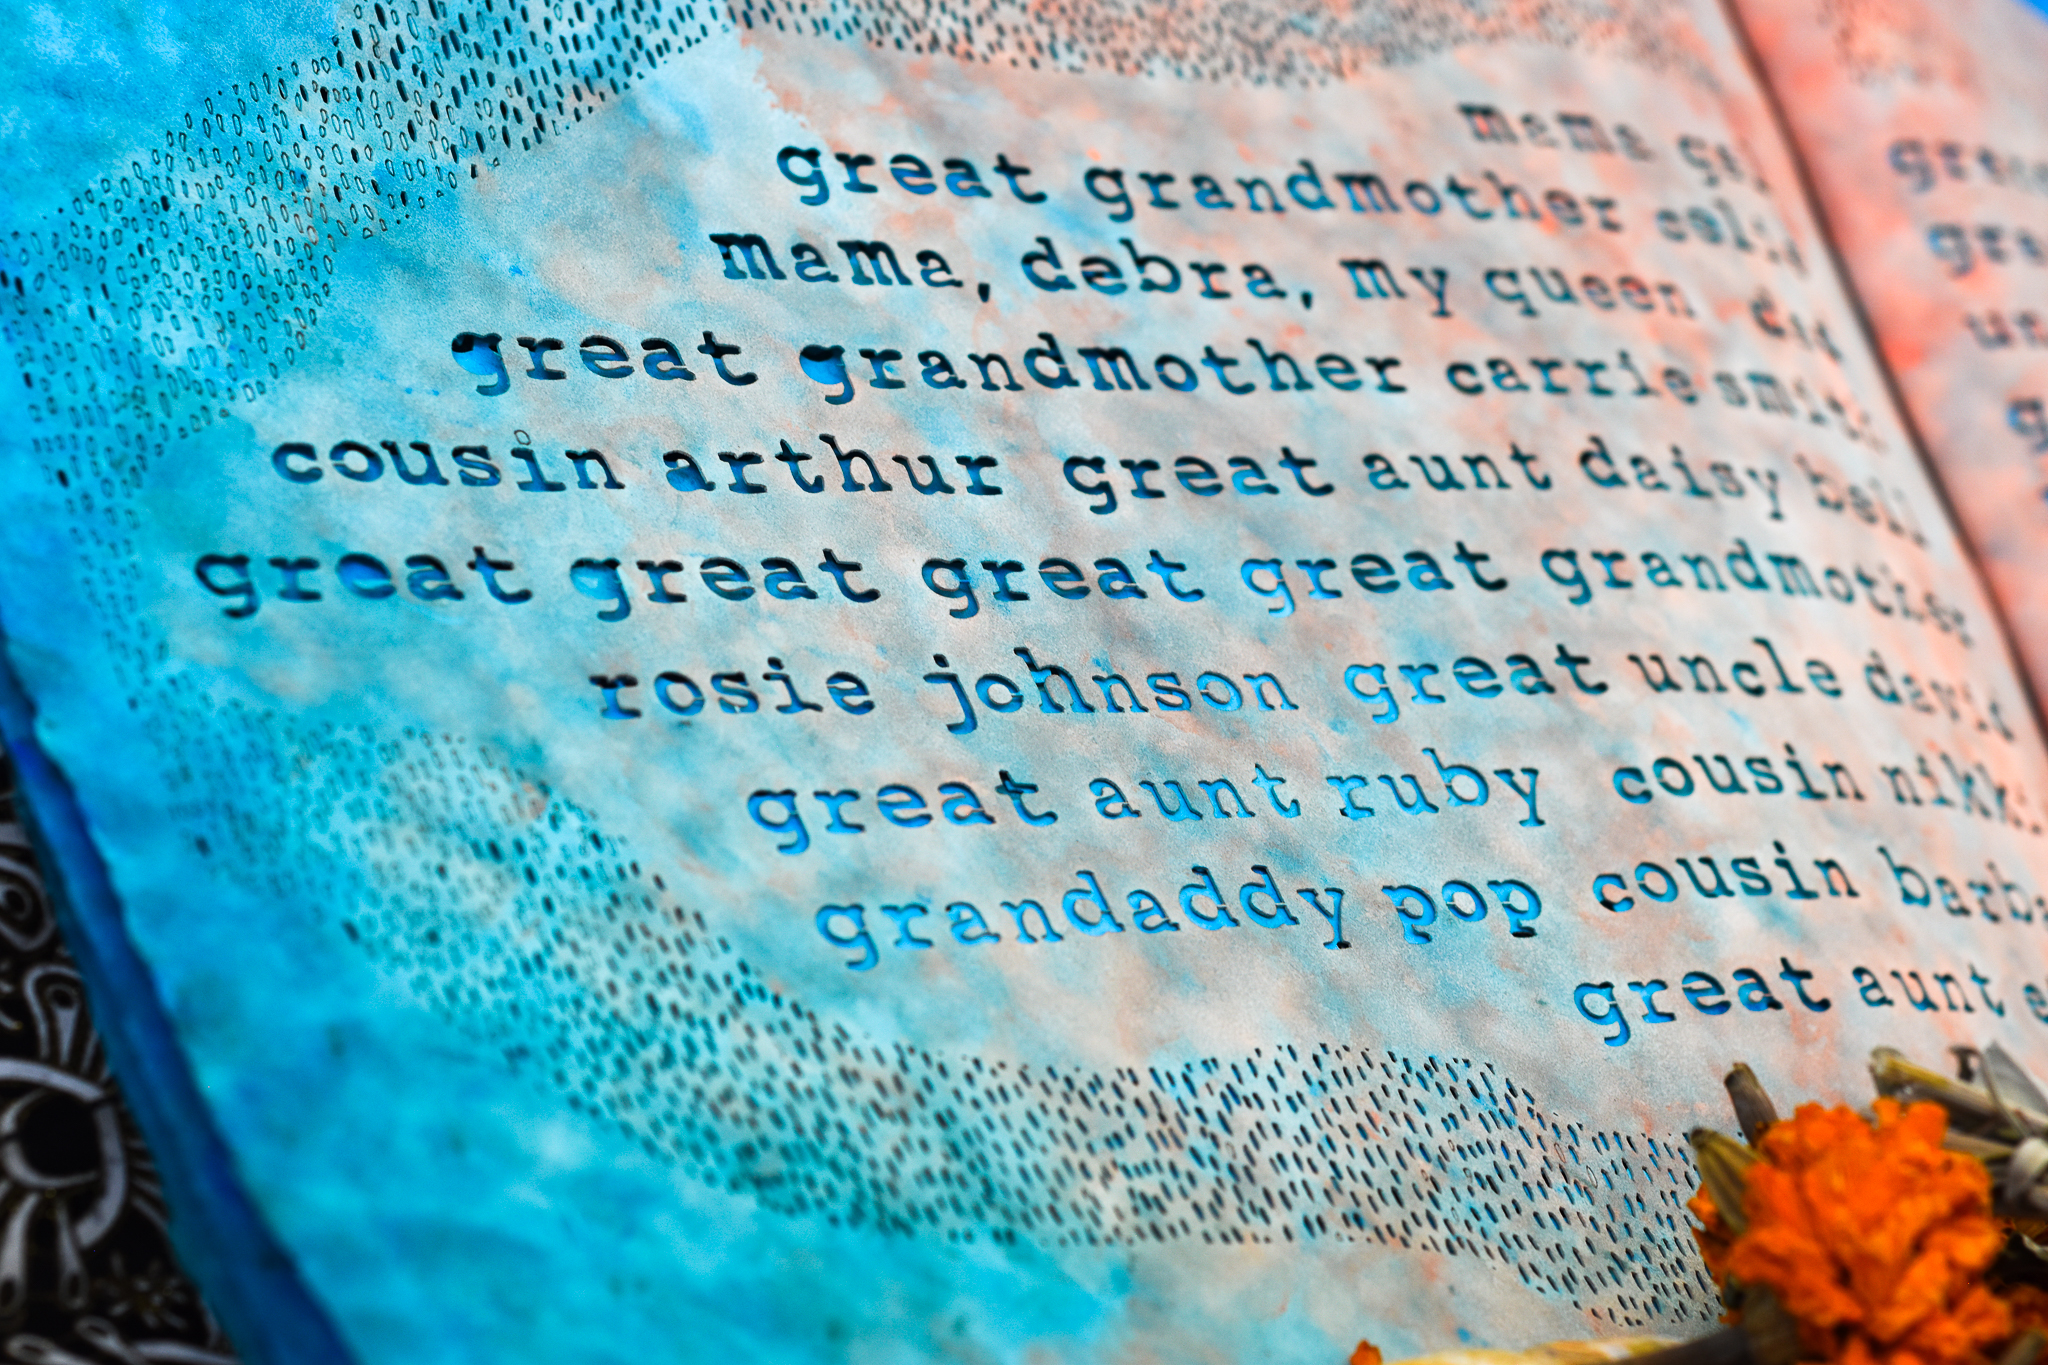 mama
great grandmother
mama, debra, my queen
great grandmother carrie smith
cousin arthur great aunt daisy bell
great great great great grandmother
rosie johnson great uncle david
great aunt ruby cousin nikki
grandaddy pop cousin
great aunt